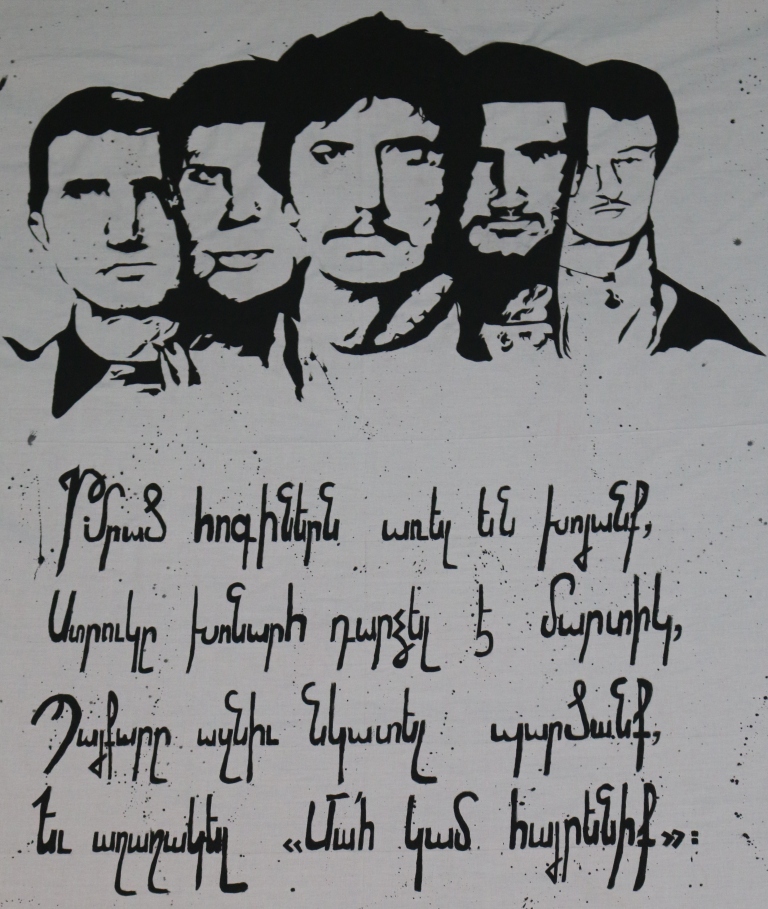 Թմրած հոգիներն առել են խոյանք,
Ստրուկը խոնարհ դարձել է մարտիկ,
Պայքարը ազնիւ նկատել պարծանք,
Եւ աղաղակել «Մահ կամ հայրենիք»: